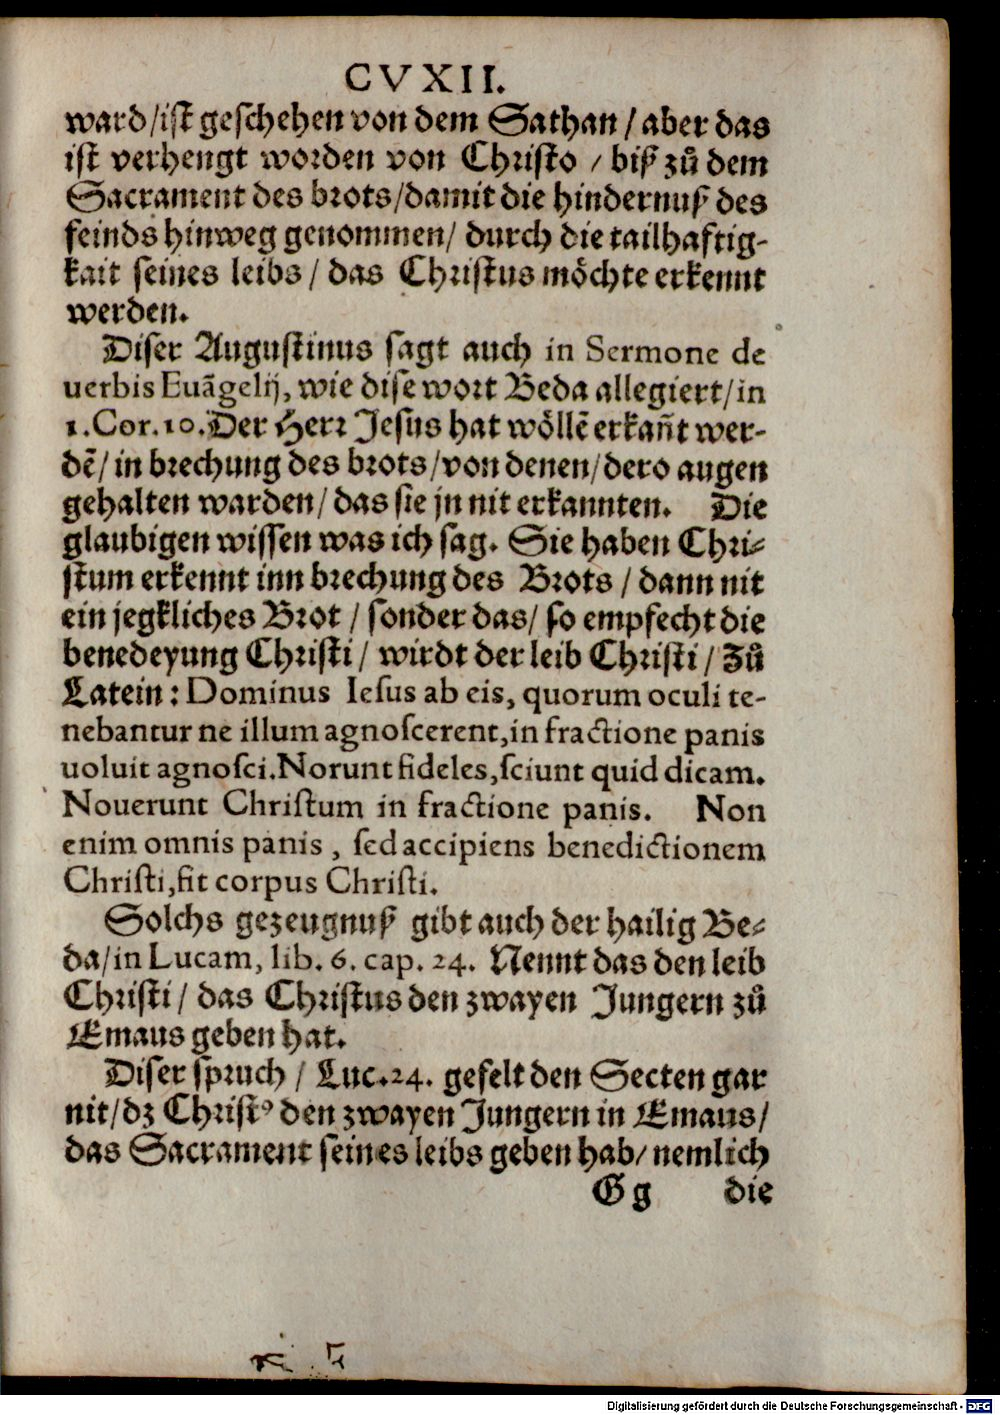 CVXII.
ward/ist geschehen von dem Sathan/aber das
ist verhengt worden von Christo / biß zů dem
Sacrament des brots/damit die hindernuß des
feinds hinweg genommen/ durch die tailhaftig-
kait seines leibs/ das Christus möchte erkennt
werden.
Diser Augustinus sagt auch in Sermone de
uerbis Euãgelij, wie dise wort Beda allegiert/in
1.Cor.10.Der Herr Jesus hat wöllē erkañt wer-
dē/in brechung des brots/von denen/dero augen
gehalten warden/das sie jn nit erkannten. Die
glaubigen wissen was ich sag. Sie haben Chri-
stum erkennt inn brechung des Brots/dann nit
ein jegkliches Brot/sonder das/so empfecht die
benedeyung Christi/ wirdt der leib Christi/Zů
Latein: Dominus Iesus ab eis, quorum oculi te-
nebantur ne illum agnoscerent,in fractione panis
uoluit agnosci.Norunt fideles,sciunt quid dicam.
Nouerunt Christum in fractione panis. Non
enim omnis panis, sed accipiens benedictionem
Christi,fit corpus Christi.
Solchs gezeugnuß gibt auch der hailig Be-
da/in Lucam, lib. 6. cap. 24. Nennt das den leib
Christi/ das Christus den zwayen Jungern zů
Emaus geben hat.
Diser spruch/ Luc.24. gefelt den Secten gar
nit/dz Christꝰ den zwayen Jungern in Emaus/
das Sacrament seines leibs geben hab/nemlich
Gg die
Digitalisierung gefördert durch die Deutsche Forschungsgemeinschaft - DFG